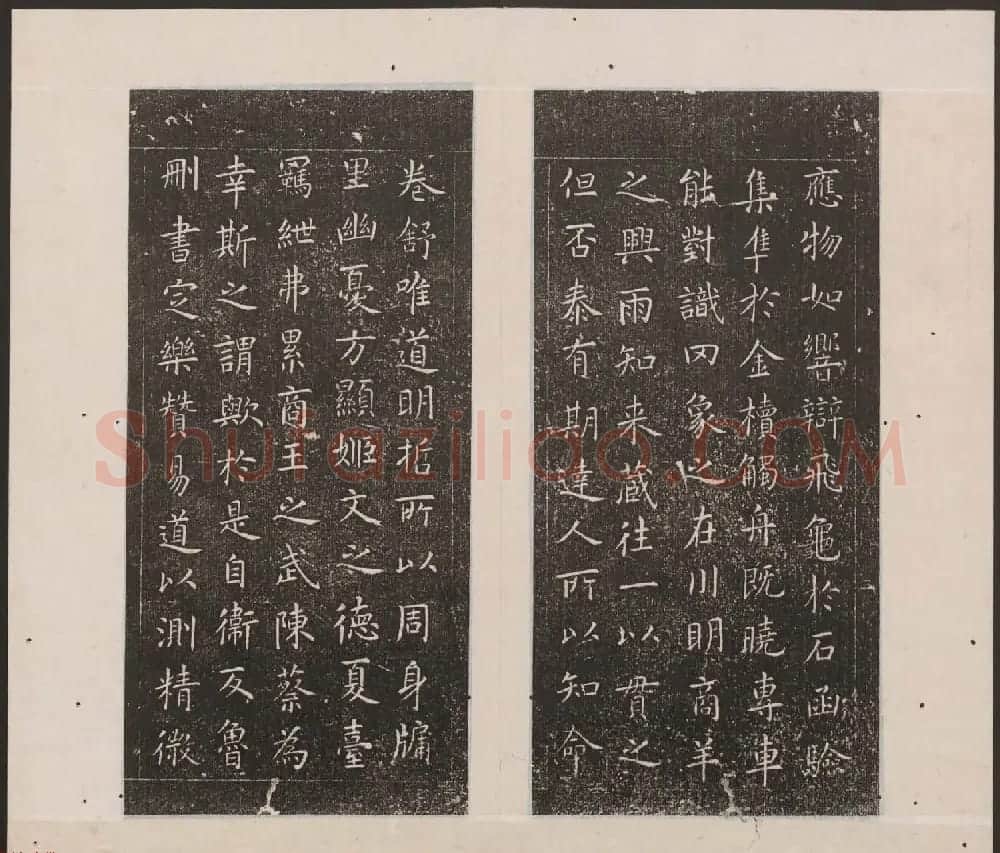 應物如響辯飛龜於石函驗
集隼於金櫝觸舟既曉專車
能對識罔象之在川明商羊
之興雨知来蔵往一以貫之
但否泰有期達人所以知命
卷舒唯道明哲所以周身牖
里幽憂方顯姬文之德夏臺
羈紲弗累商王之武陳蔡為
幸斯之謂歟於是自衛反魯
刪書定樂贊易道以測精微
Shufaziliao.COM